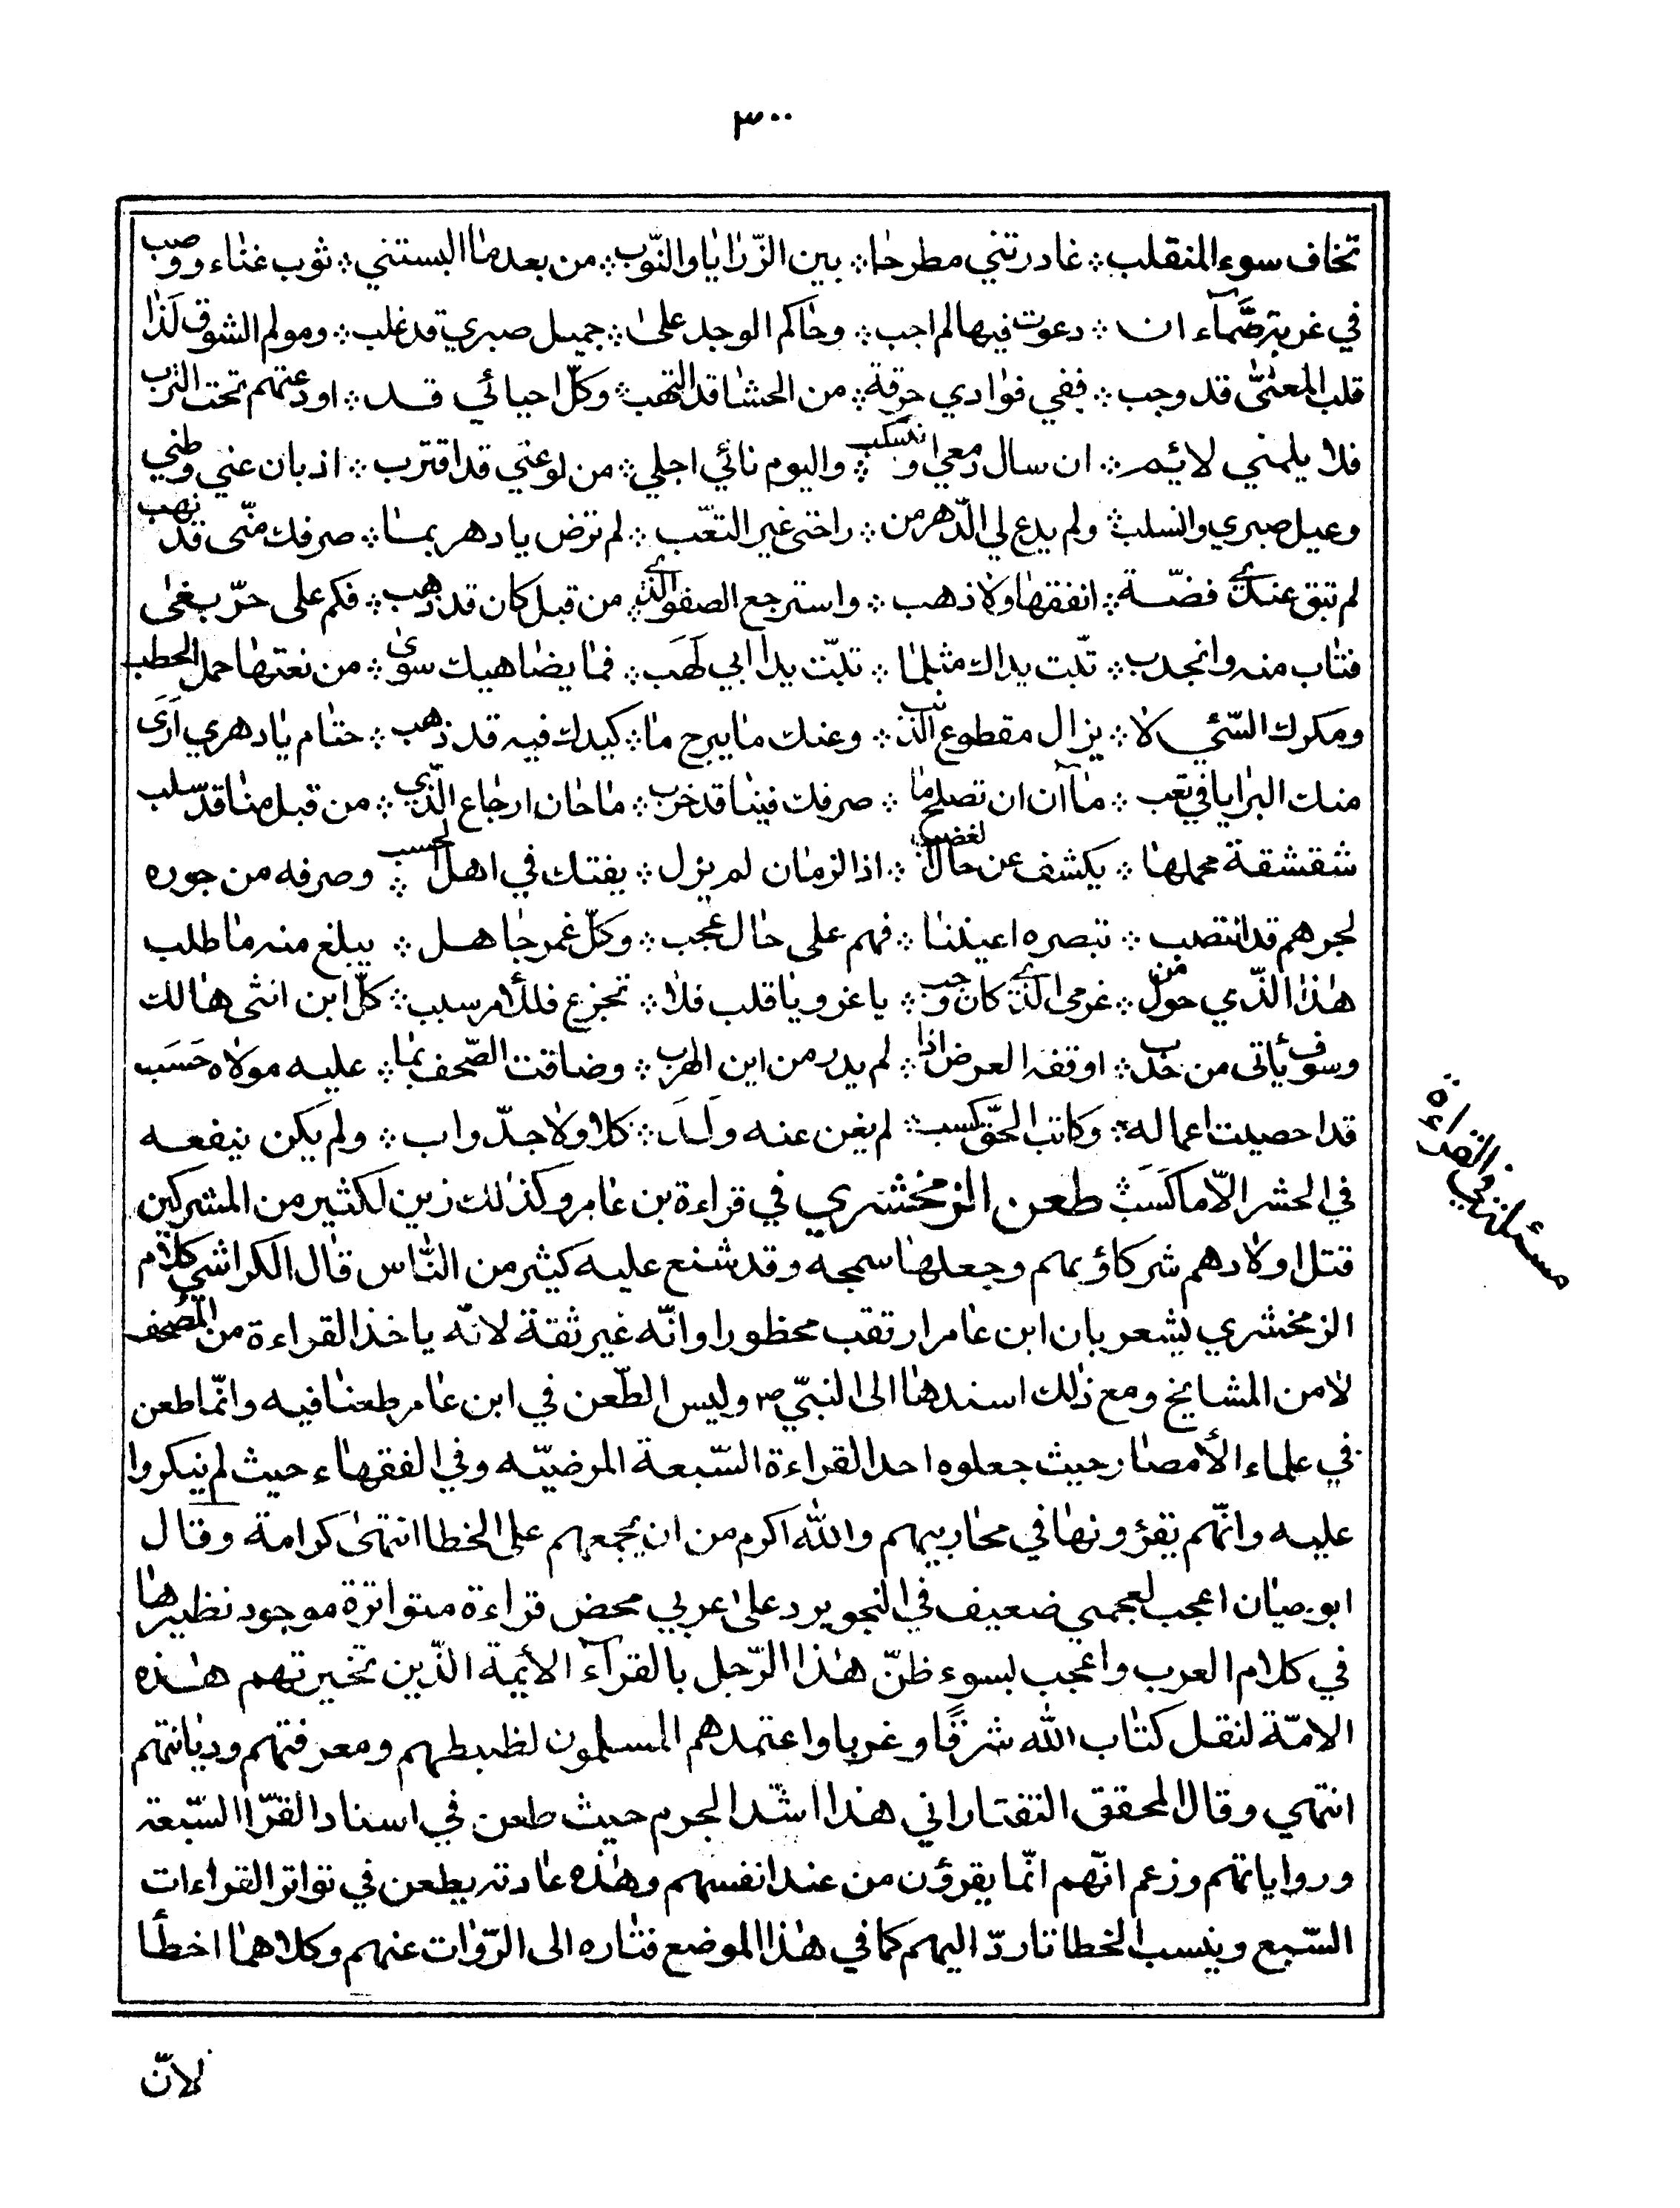 ٣٠٠
تخاف سوء المنقلب ∴ غادرتني مطرحا ∴ بين الرّزايا والنّوب ∴ من بعد ما البستني ∴ ثوب غناء ووصب
في غربة صمّآء ان ∴ دعوت فيها لم اجب ∴ وحاكم الوجد على ∴ جميل صبري قد غلب ∴ ومولم الشوق لذا
قلب المعنىّ قد وجب ∴ ففي فوادي حرقة ∴ من الحشا قد التهب ∴ وكلّ احبائي قد ∴ اودعتهم تحت الترب
فلا يلمني لائم ∴ ان سال دمعي وانسكب ∴ واليوم نائي اجلي ∴ من لوعتي قد اقترب ∴ اذ بان عني وطني
وعيل صبري وانسلب ∴ ولم يدع لي الدّهر من ∴ راحتي غير التعّب ∴ لم ترض يا دهر بما ∴ صرفك منّى قد نهب
لم تبق عندي فضّة ∴ انفقها ولا ذهب ∴ واسترجع الصفو الّذي ∴ من قبل كان قد ذهب ∴ فكم على حرّ بغى
فتاب منه وانجدب ∴ تبّت يداك مثلما ∴ تبّت يدا ابي لهَب ∴ فما يضاهيك سوى ∴ من نعتها حمل الحطب
ومكرك السّئي لا ∴ يزال مقطوع الذنب ∴ وعنك ما يبرح ما ∴ كيدك فيه قد ذهب ∴ حتام يا دهري ارَى
منك البرايا في تعب ∴ ما آن ان تصلح ما ∴ صرفك فينا قد خرب ∴ ما حان ارجاع الّذي ∴ من قبل منا قد سلب
شقشقة محملها ∴ يكشف عن حال الغضب ∴ اذ الزمان لم يزل ∴ يفتك في اهل الحسب ∴ وصرفه من جوره
لجرهم قد انتصب ∴ تبصره اعيننا ∴ فهم على حال عجب ∴ وكلّ غمر جاهل ∴ يبلغ منه ما طلب
هذا الذّي حول من ∴ غرمي الذي كان وجب ∴ يا غرو يا قلب فلا ∴ تجزع فللأمر سبب ∴ كلّ ابن انثى هالك
وسوف يأتى من حدب ∴ اوقفه العرض اذا ∴ لم يدر من اين الهرب ∴ وضاقت الصّحف بما ∴ عليه مولاه حَسَب
قد احصيت اعماله ∴ وكاتب الحقّ كسب ∴ لم يغن عنه ولَد ∴ كلا ولا جدّ واب ∴ ولم يكن ينفعه
في الحشر الاّ ما كَسَبَ ∴ طعن الزمخشري في قراءة بن عامر وكذلك زين لكثير من المشركين
قتل اولادهم شركاؤبهم وجعلها سمجه وقد شنع عليه كيثر من النّاس قال الكراشي كلام
الزمخشري يشعر بان ابن عامر ارتقب محظورا وانّه غير ثقة لانّه ياخذ القراءة من المصحف
لا من المشايخ ومع ذلك اسندها الى النبيّ ص وليس الطّعن في ابن عامر طعنا فيه وانّما طعن
في علماء الأمصار حيث جعلوه احد القراءة السّبعة المرضيّه وفي الفقهاء حيث لم ينكروا
عليه وانّهم يقرؤونها في محاريبهم والله اكرم من ان يجمعهم على الخطا انتهى كرامة وقال
ابوحيان اعجب لعجمي ضعيف في النحو يرد على عربي محض قراءة متواترة موجود نظيرها
في كلام العرب واعجب لسوء ظنّ هذا الرّجل بالقرآء الأيمة الذّين تخيرتهم هذه
الامّة لنقل كتاب الله شرقًا وغربا واعتمدهم المسلمون لظبطهم ومعرفتهم وديانتهم
انتهي وقال المحقق التفتاراني هذا اشدّ الجرم حيث طعن في اسناد القرّا السّبعة
ورواياتهم وزعم انّهم انّما يقرؤن من عند انفسهم وهذه عادته يطعن في تواتر القراءات
السّبع وينسب الخطا تاردّ اليهم كما في هذا الموضع فتاره الى الرّوات عنهم وكلاهما اخطأ
لانّ
مسئلة في القراءة